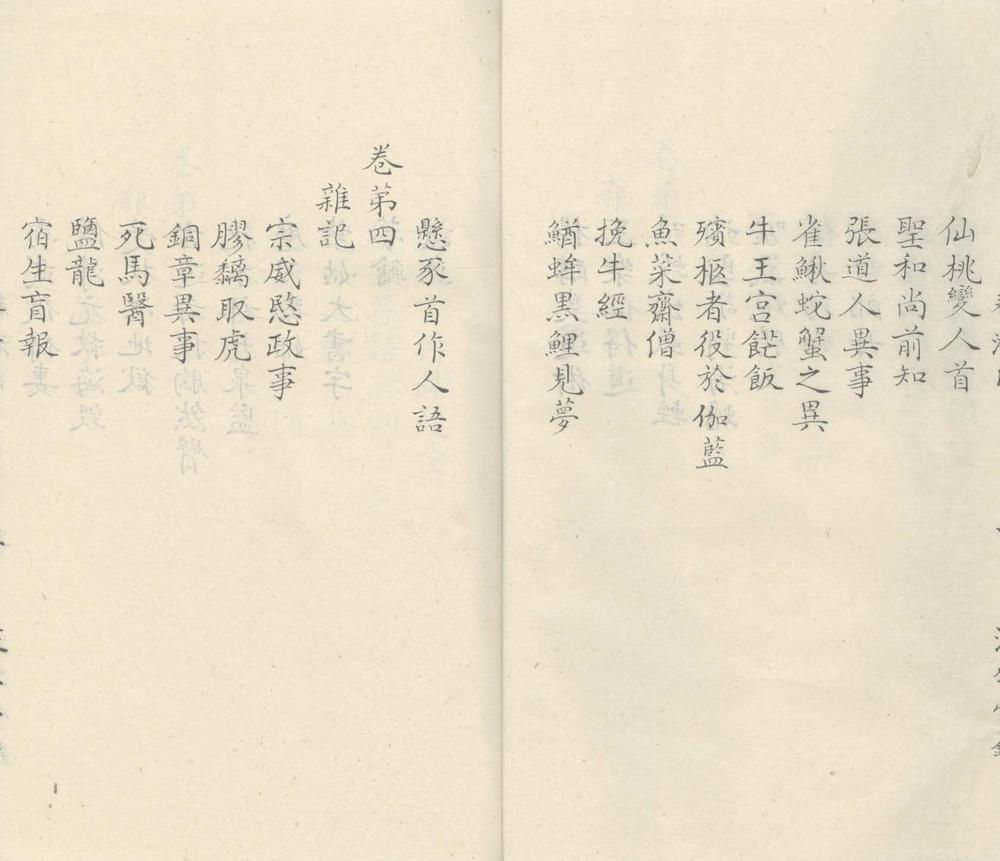 仙桃變人首
聖和尚前知
張道人異事
雀鰍蛇蟹之異
牛王宮餻飯
殯柩者役於伽藍
魚菜齋僧
挽牛經
鰌蜯黑鯉見夢
懸豕首作人語
卷第四
雜記
宗威愍政事
膠黐取虎
銅章異事
死馬醫
鹽龍
宿生盲報